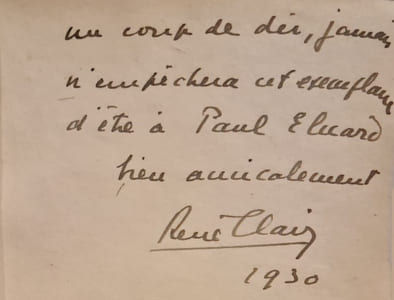 un coup de dés, jamais
n'empêchera cet exemplaire
d'être à Paul Eluard
bien amicalement
René Clair
1930